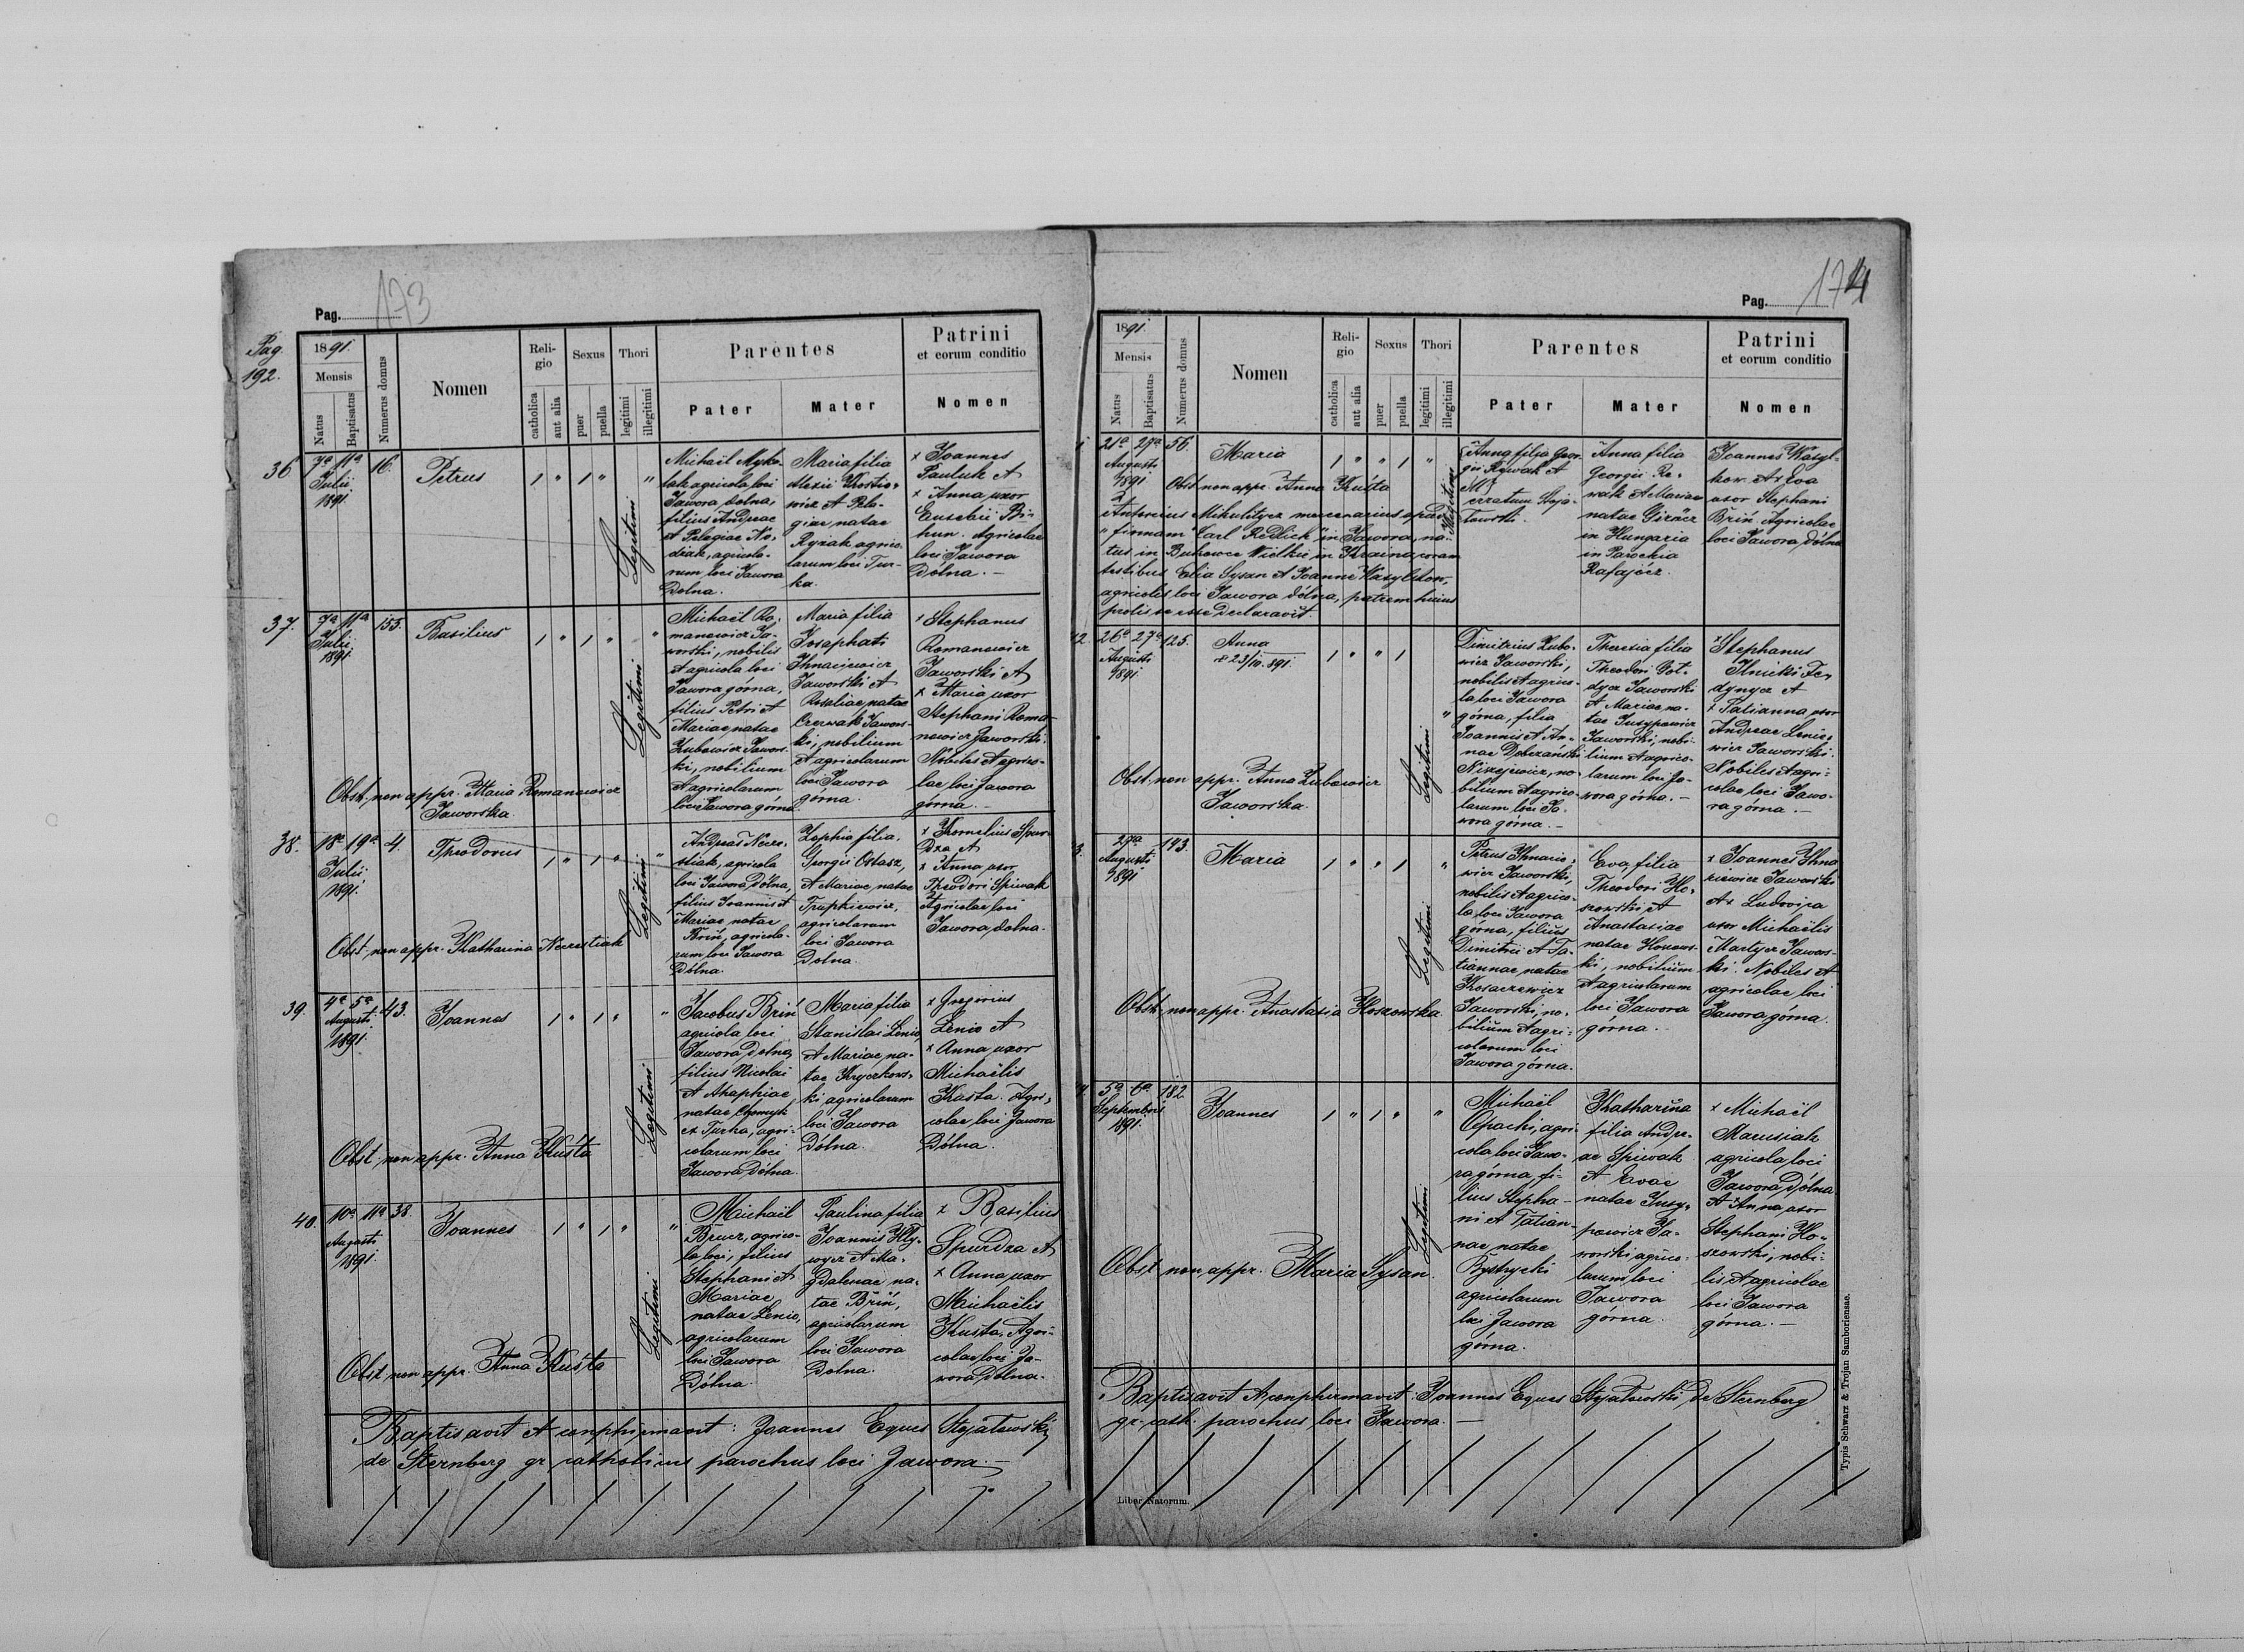 Pag. 173
Pag.
192.
1891.
Mensis
Natus
Baptisatus
Numerus domus
Nomen
Reli-
gio
catholica
aut alia
Sexus
puer
puella
Thori
legitimi
illegitimi
Parentes
Pater
Mater
Patrini
et eorum conditio
Nomen
36
7a 11a
Julii
1891.
16.
Petrus
1 " 1 " "
Legitimi
Michaël Myko-
tak agricola loci
Jawora dolna,
filius Andreae
et Pelagiae No-
diak, agricola-
rum loci Jawora
Dolna.
Maria filia
Alexii Kostie-
wicz et Pela-
giae natae
Ryzak agrico-
larum loci Tur-
ka.
x Joannes
Pauluk et
x Anna uxor
Eusebii Bi-
hun. Agricolae
loci Jawora
Dolna. —
37.
7a 11a
Julii
1891.
153.
Basilius
1 " 1 " "
Legitimi
Michaël Ro-
manowicz Ja-
worski, nobilis
et agricola loci
Jawora górna,
filius Petri et
Mariae natae
Zubowicz Jawors-
ki, nobilium
et agricolarum
loci Jawora górna.
Maria filia
Josaphati
Ihnaciewicz
Jaworski et
Rosaliae natae
Czerwak Jawors-
ki, nobilium
et agricolarum
loci Jawora
górna.
x Stephanus
Romanowicz
Jaworski et
x Maria uxor
Stephani Roma-
nowicz Jaworski.
Nobiles et agrico-
lae loci Jawora
górna. —
Obst. non appr. Maria Romanowicz
Jaworska.
38.
18a 19a
Julii
1891.
4.
Theodorus
1 " 1 " "
Legitimi
Andreas Necze-
stiak, agricola
loci Jawora Dólna,
filius Joannis et
Mariae natae
Briń, agricola-
rum loci Jawora
Dólna.
Zophia filia
Georgii Ostasz,
et Mariae natae
agricolarum
loci Jawora
Dolna.
x Kornelius Spur-
dza et
x Anna uxor
Theodori Spiwak
Agricolae loci
Jawora dolna.
Obst. non appr. Katharina Neczestiak
39.
4a 5a
Augusti
1891.
43.
Joannes
1 " 1 " "
Legitimi
Jacobus Briń
agricola loci
Jawora Dolna,
filius Nicolai
et Ahaphiae
natae Chomyk
ex Turka, agri-
colarum loci
Jawora Dólna.
Maria filia
Stanislai Lenio,
et Mariae na-
tae Kryczkows-
ki agricolarum
loci Jawora
Dólna.
x Gregorius
Lenio et
x Anna uxor
Michaëlis
Kusta. Agri-
colae loci Jawora
Dólna.
Obst. non appr. Anna Kusta
40.
10a 11a
Augusti
1891.
38.
Joannes
1 " 1 " "
Legitimi
Michaël
Brucz, agrico-
la loci, filius
Stephani et
Mariae
natae Lenio,
agricolarum
loci Jawora
Dólna.
Paulina filia
Joannis Hly-
wycz et Ma-
gdalenae na-
tae Briń,
agricolarum
loci Jawora
Dolna.
x Basilius
Spurdza et
x Anna uxor
Michaëlis
Kusta, Agri-
colae loci Ja-
wora Dólna.
Obst. non appr. Anna Kusta
Baptisavit et conphirmavit: Joannes Eques Stejałowski
de Sternberg gr. catholicus parochus loci Jawora. —
Pag. 174
1891.
Mensis
Natus
Baptisatus
Numerus domus
Nomen
Reli-
gio
catholica
aut alia
Sexus
puer
puella
Thori
legitimi
illegitimi
Parentes
Pater
Mater
Patrini
et eorum conditio
Nomen
1
21a 27a
Augusti
1891.
56.
Maria
1 " " 1 "
Illegitimi
Anna filia Geor-
gii Rewak et
M
erratum Steja-
łowski.
Anna filia
Georgii Re-
wak et Mariae
natae Girócz
in Hungaria
in Parochia
Rafajócz.
Joannes Wasyl-
kow. et x Eva
uxor Stephani
Briń. Agricolae
loci Jawora dólna
Obst. non appr. Anna Kusta
Antonius Mikulitycz mercenarius apud
"firmam" Carl Redlich" in Jawora, na-
tus in Bukowce Wielkie in Kraina coram
testibus Elia Sysan et Joanne Wasylkow,
agricolis loci Jawora dólna, patrem huius
prolis se esse declaravit.
2.
26a 27a
Augusti
1891.
125.
Anna
23/10. 891.
1 " " 1 "
Legitimi
Dimitrius Zubo-
wicz Jaworski,
nobilis et agrico-
la loci Jawora
górna, filia
Joannis et An-
nae Dobrzański
Niziejewicz, no-
bilium et agrico-
larum loci Ja-
wora górna. —
Theresia filia
Theodori Got-
dycz Jaworski
et Mariae na-
tae Jusypowicz
Jaworski, nobi-
lium et agrico-
larum loci Ja-
wora górna. —
x Stephanus
Ilnicki Fe-
dynycz et
x Tatianna uxor
Andreae Lenie-
wicz Jaworski.
Nobiles et agri-
colae loci Jawo-
ra górna. —
Obst. non appr. Anna Zubowicz
Jaworska.
3.
27a
Augusti
1891
193.
Maria
1 " " 1 "
Legitimi
Petrus Ihnacie-
wicz Jaworski,
nobilis et agrico-
la loci Jawora
górna, filius
Dimitrii et Ta-
tiannae natae
Kosaczewicz
Jaworski, no-
bilium et agri-
colarum loci
Jawora górna.
Eva filia
Theodori Ho-
szowski et
Anastasiae
natae Hoszows-
ki, nobilium
et agricolarum
loci Jawora
górna. —
x Joannes Ihna
kiewicz Jaworski
et x Ludovica
uxor Michaëlis
Martycz Jawors-
ki. Nobiles et
agricolae loci
Jawora górna.
Obst. non appr. Anastasia Hoszowska.
4.
5a 6a
Septembris
1891.
182.
Joannes
1 " 1 " "
Legitimi
Michaël
Opacki, agri-
cola loci Jawo-
ra górna, fi-
lius Stepha-
ni et Tatian-
nae natae
Bystrycki
agricolarum
loci Jawora
górna.
Katharina
filia Andre-
ae Spiwak
et Evae
natae Jusy-
powicz Ja-
worski agrico-
larum loci
Jawora
górna.
x Michaël
Marusiak
agricola loci
Jawora Dólna
et x Anna uxor
Stephani Ho-
szowski, nobi-
lis et agricolae
loci Jawora
górna. —
Obst. non appr. Maria Sysan.
Baptisavit et conphirmavit: Joannes Eques Stejałowski de Sternberg
gr. cath. parochus loci Jawora. —
Liber Natorum.
Typis Schwarz & Trojan Samboriensae.